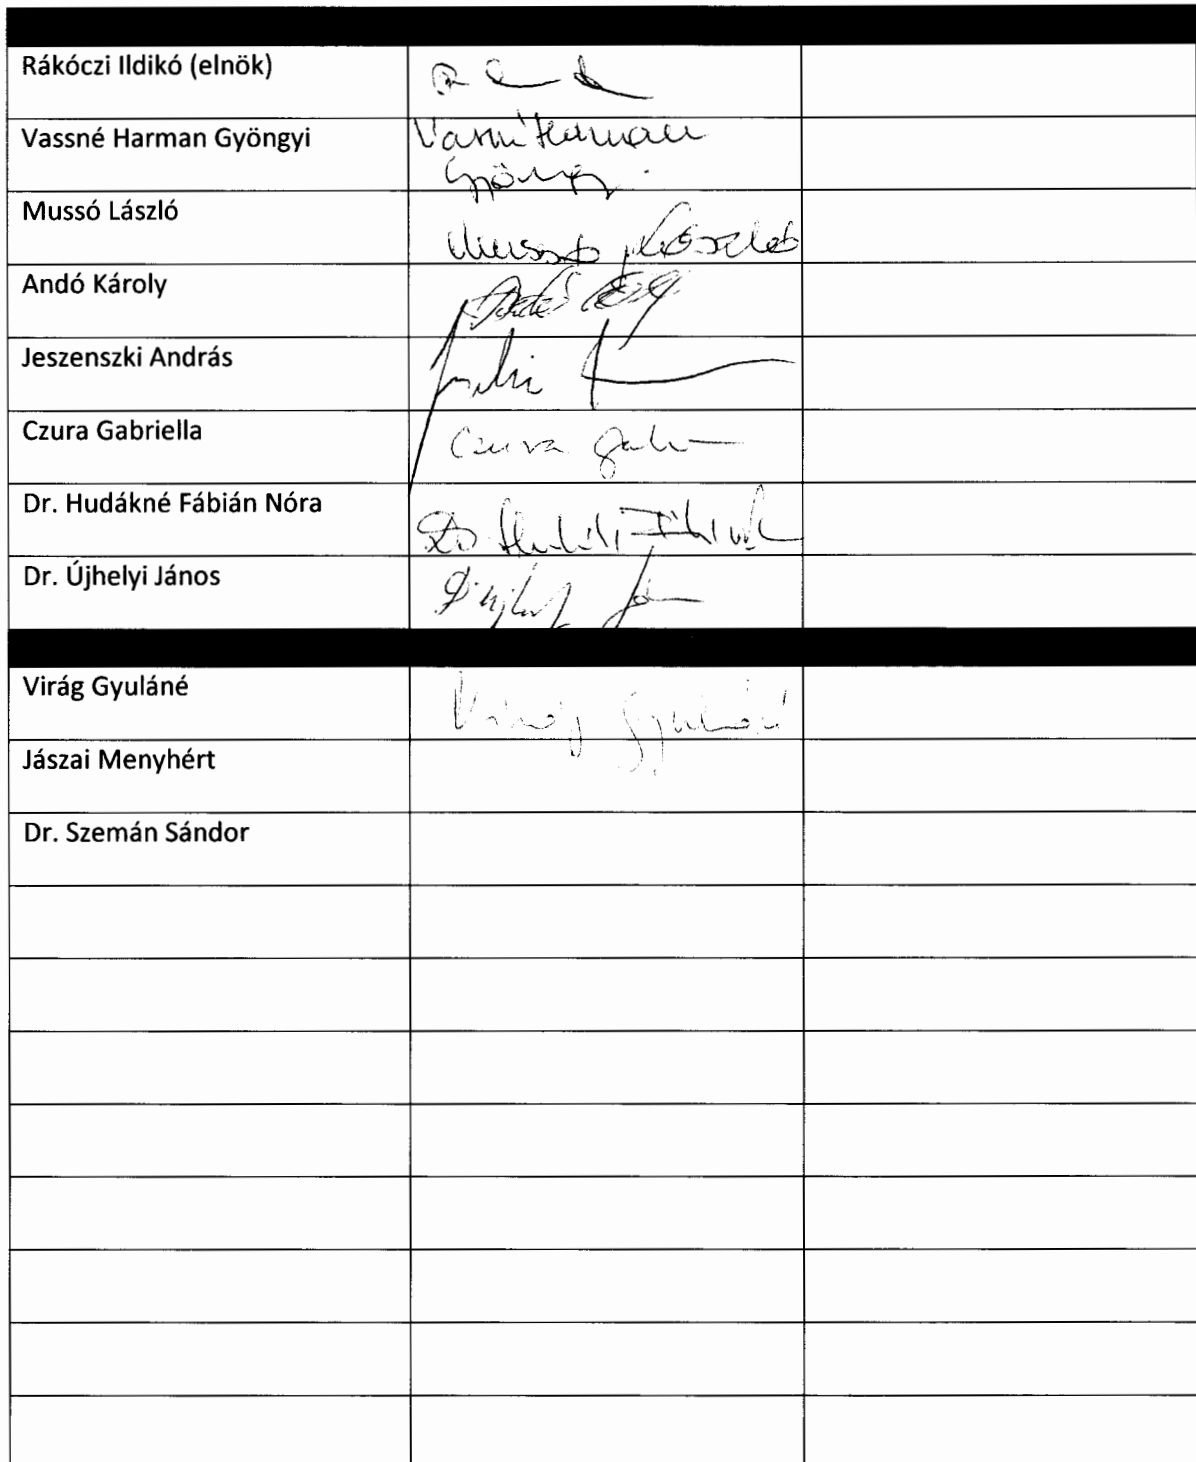 Rákóczi Ildikó (elnök)
Vassné Harman Gyöngyi
Vassné Harman
Gyöngyi
Mussó László
Mussó László
Andó Károly
Jeszenszki András
Czura Gabriella
Czura
Dr. Hudákné Fábián Nóra
Dr. Újhelyi János
Virág Gyuláné
Virág Gyuláné
Jászai Menyhért
Dr. Szemán Sándor